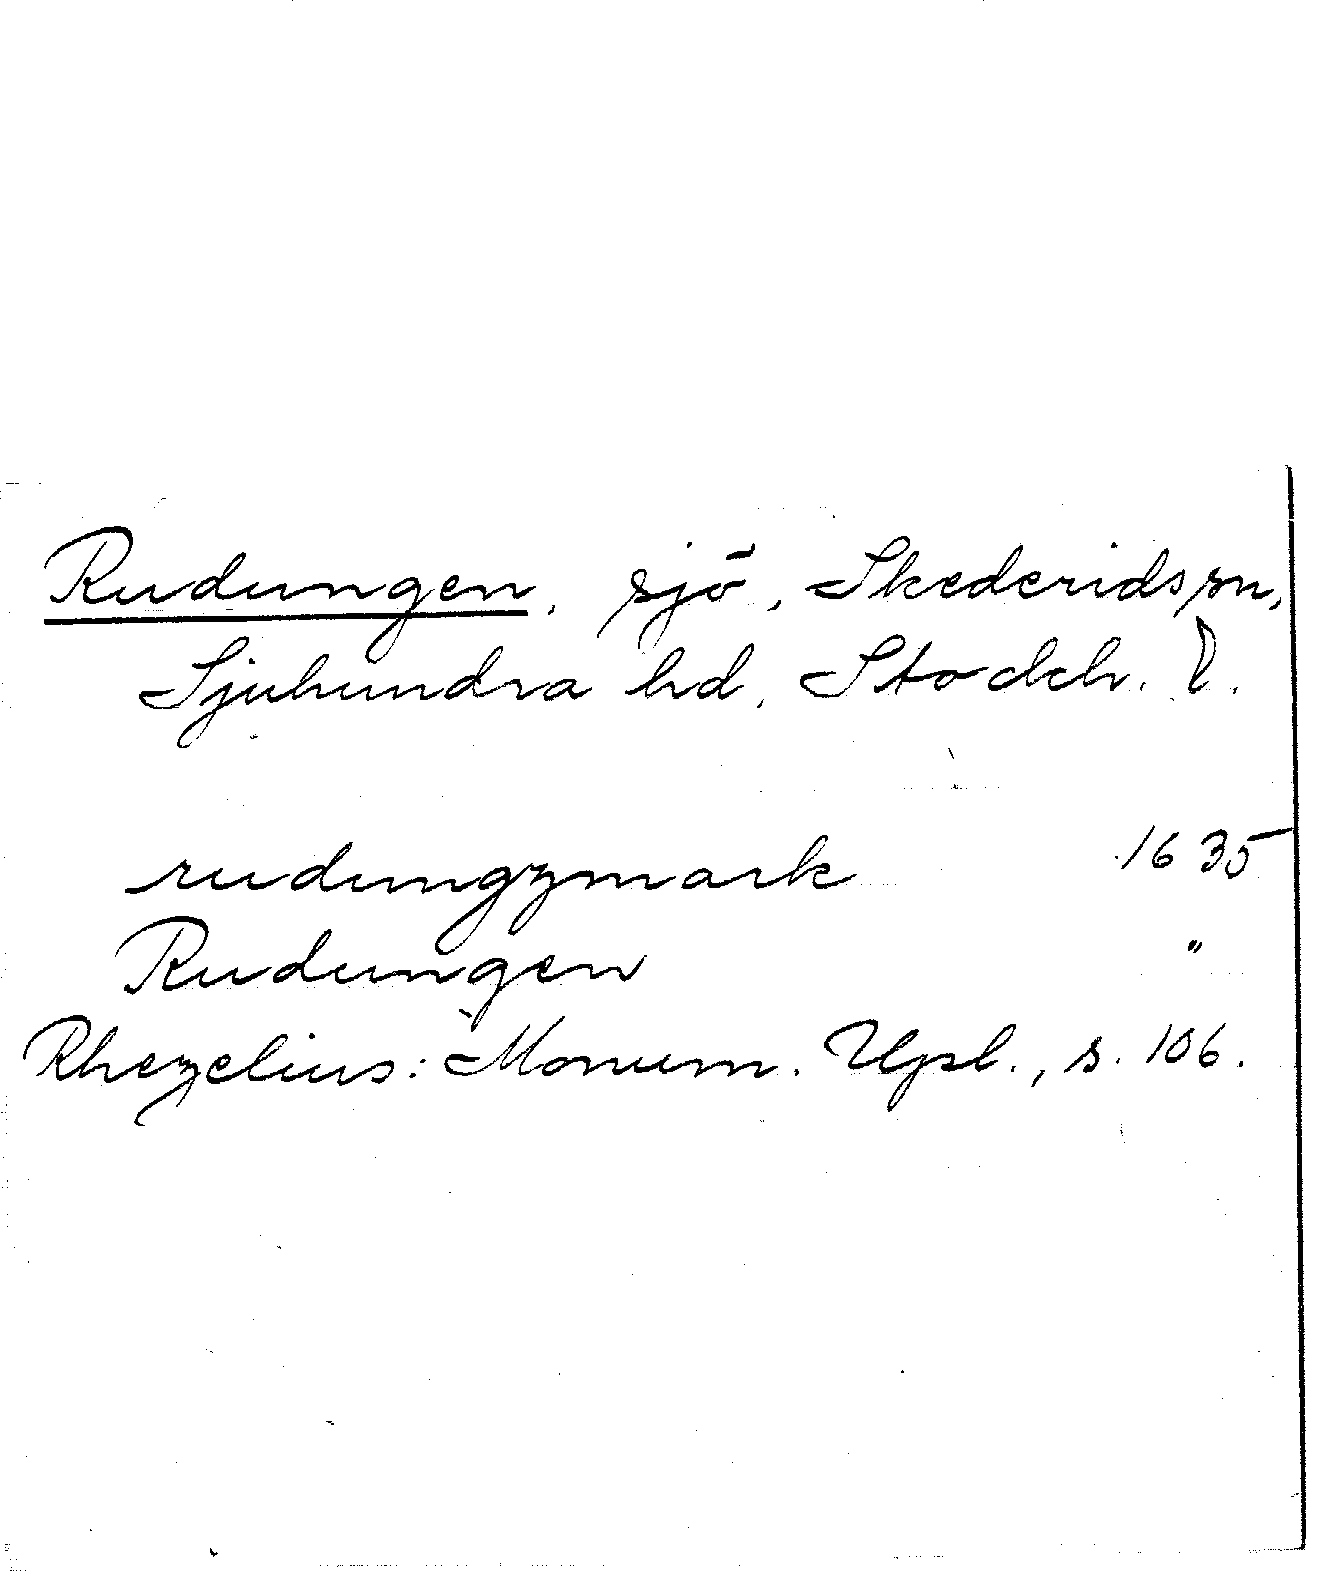 Rudungen, sjö, Skederids sn,
Sjuhundra hd, Stockh. l.
rudungzmark 1635
Rudungen "
Rhezelius: Monum. Upl., s. 106.